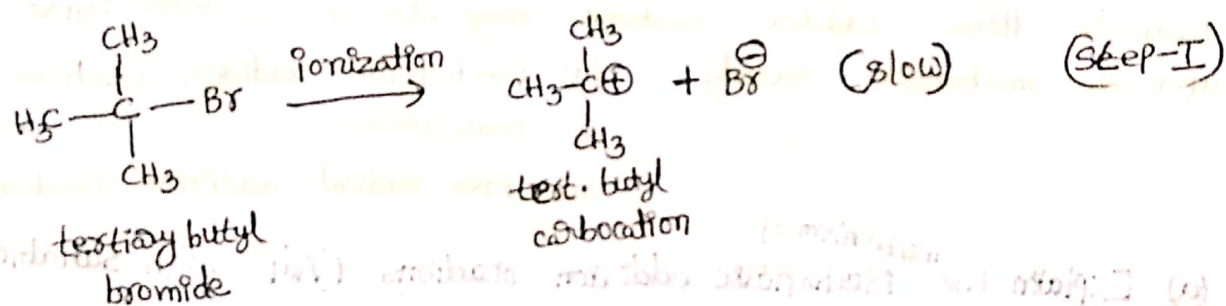 CH3 CH3
H3C—C—Br ionization → CH3-C⊕ + Br⊖ (slow) (Step-I)
CH3 CH3
tertiary butyl bromide
tert. butyl carbocation